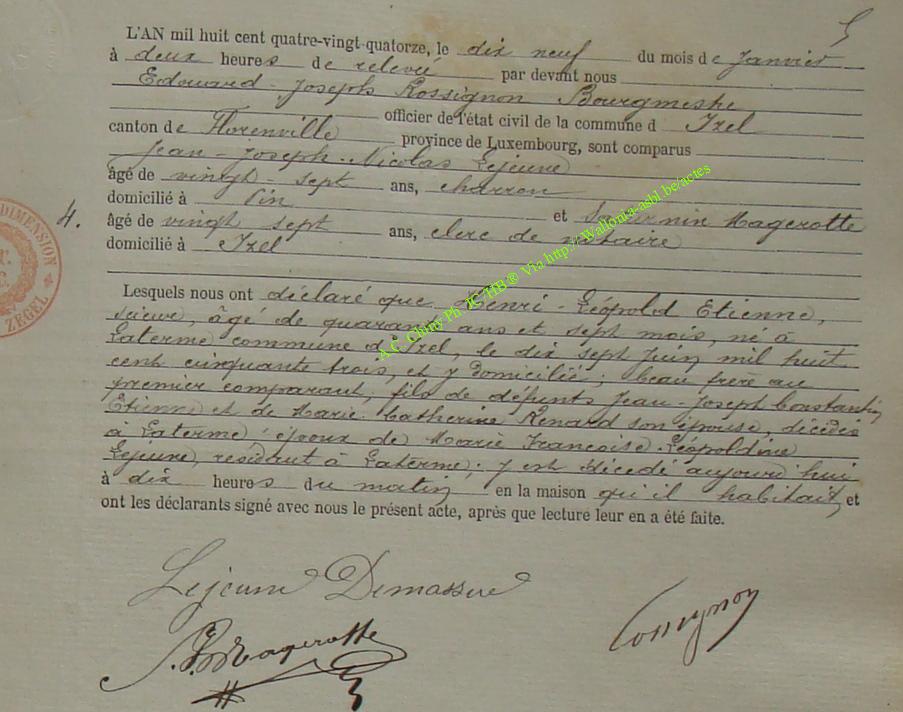 5
L'AN mil huit cent quatre-vingt-quatorze, le dix neuf du mois de Janvier
à deux heures de relevée par devant nous
Edouard-Joseph Rossignon Bourgmestre
officier de l'état civil de la commune d Izel
canton de Florenville province de Luxembourg, sont comparus
Jean-Joseph-Nicolas Lejeune
âgé de vingt-sept ans, charron
domicilié à Pin et Saturnin Magerotte
4.
âgé de vingt sept ans, clerc de notaire
domicilié à Izel
DIMENSION
ZEGEL
Lesquels nous ont déclaré que Henri-Léopold Etienne,
âgé de quarante ans et sept mois, né à
Laterme commune d'Izel, le dix sept Juin mil huit
cent cinquante trois, et y domicilié; beau frère au
premier comparant, fils de défunts Jean-Joseph Constantin
Etienne et de Marie Catherine Renard son épouse, décédés
à Laterme; époux de Marie Françoise Léopoldine
Lejeune, résidant à Laterme; y est décédé aujourd'hui
à dix heures du matin en la maison qu'il habitait, et
ont les déclarants signé avec nous le présent acte, après que lecture leur en a été faite.
Lejeune
Magerotte
Rossignon
A.C. Chiny Ph JC-HB® Via http://Wallonia-asbl.be/actes